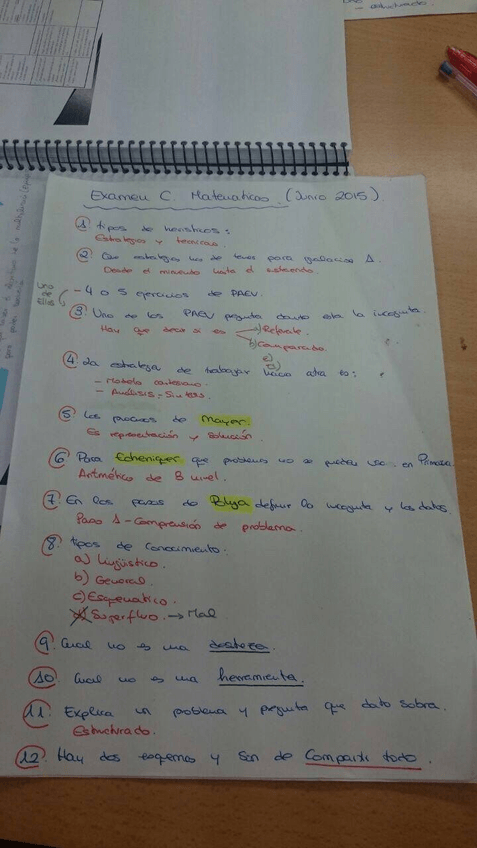 Examen C. Matematicas. (Junio 2015).
① tipos de heuristicos:
Estrategias y tecnicas.
② Que estrategia ha de tener para
Desde el minuendo hasta el sustraendo.
uno de ellos
- 4 o 5 ejercicios de PAEV.
③ Uno de los PAEV pregunta donde esta la incognita.
Hay que decir si es a) Referente.
b) Comparado
c)
④ La estrategia de trabajar hacia atras es:
- Metodo cartesiano.
- Análisis - Sintesis.
⑤ Los procesos de Mayer.
Es representación y Solución.
⑥ Para Echenique que problema no se pueden usar en Primaria
Aritmético de 3 nivel.
⑦ En los pasos de Polya definir la incognita y los datos.
Paso 1 - Comprensión de problema.
⑧ tipos de Conocimiento:
a) Lingüístico.
b) General.
c) Esquematico.
d) Superfluo. → Mal
⑨ Cual no es una destreza.
⑩ Cual no es una herramienta.
⑪ Explica un problema y pregunta que dato sobra.
Estructurado.
⑫ Hay dos esquemas y son de Compartir todo.